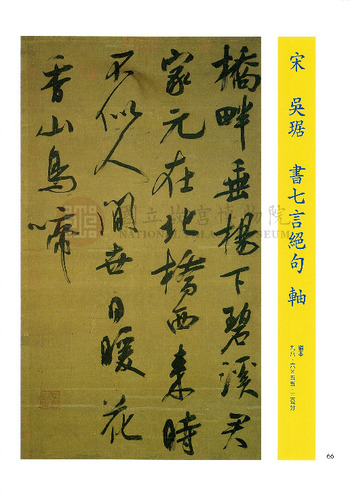 宋 吳琚 書七言絕句 軸
絹本
橋畔垂楊下碧溪君
家元在北橋西來時
不似人間世日暖花
香山鳥啼
國立故宮博物院
NATIONAL PALACE MUSEUM
66